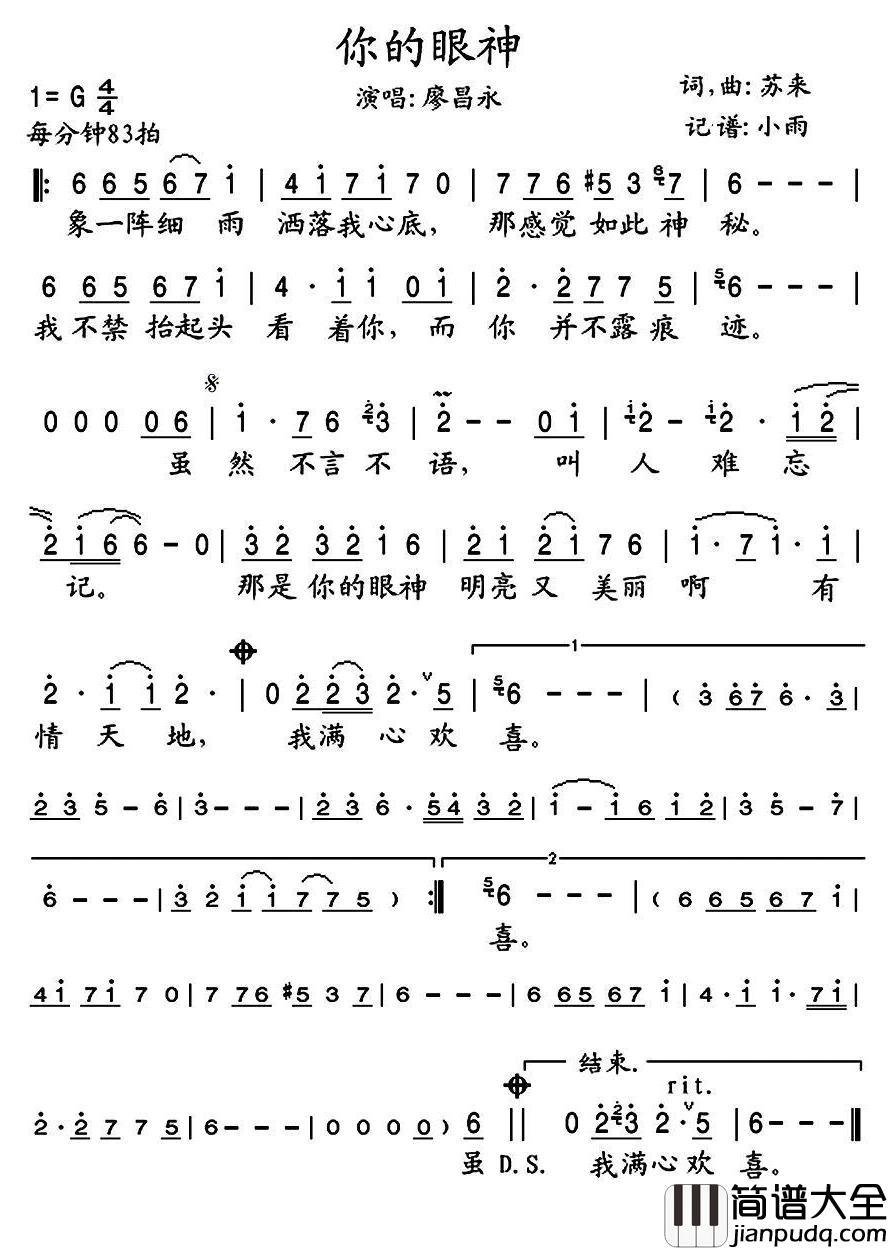 你的眼神
1= G 4/4
演唱: 廖昌永
词,曲: 苏来
每分钟83拍
记谱: 小雨
6 6 6 5 6 7 i | 4 i 7 i 7 0 | 7 7 6 #5 3 6 7 | 6 - - - |
象一阵细 雨 洒落我心底, 那感觉 如此 神 秘。
6 6 5 6 7 i | 4 · i i 0 i | 2 · 2 7 7 5 | 5 6 - - - |
我 不禁 抬起头 看 着你, 而 你 并不露 痕 迹。
0 0 0 0 6 | i · 7 6 2 3 | 2 - - 0 i | i 2 - i 2 - i 2 |
虽 然 不言 不 语, 叫 人 难 忘
2 i 6 6 - 0 | 3 2 3 2 i 6 | 2 i 2 i 7 6 | i · 7 i · i |
记。 那是 你的眼神 明亮 又 美丽 啊 有
1
2 · i i 2 · | 0 2 2 3 2 · v 5 | 5 6 - - - | ( 3 6 7 6 · 3 |
情 天 地, 我满 心 欢 喜。
2 3 5 - 6 | 3 - - - | 2 3 6 · 5 4 3 2 | i - i 6 i 2 | 3 5 - 7 |
2
6 - - - | 3 2 i i 7 7 5 ) :‖ 5 6 - - - | ( 6 6 5 6 7 i |
喜。
4 i 7 i 7 0 | 7 7 6 #5 3 7 | 6 - - - | 6 6 5 6 7 i | 4 · i i · 7 i |
结束.
rit.
2 · 2 7 7 5 | 6 - - - | 0 0 0 0 ) 6 ‖ 0 2 2 3 2 · v 5 | 6 - - - ‖
虽 D.S. 我满心 欢 喜。
简谱大全
jianpudq.com